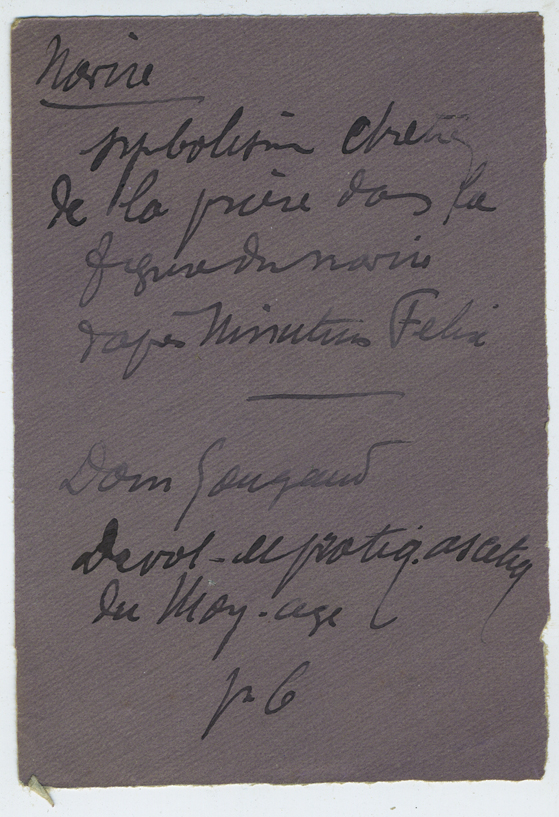 Navire
symbolisme chrétien
de la prière dans la
figure du navire
d'après Minutius Felix
Dom Gougaud
Devot- et pratiq. ascetiq
du Moy-age
p 6